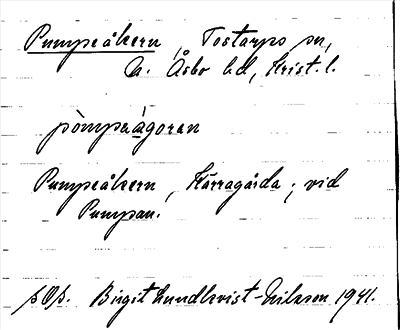 Pumpeåkern, Tostarps sn,
N. Åsbo hd, Krist. l.
pòmpeàgoran
Pumpeåkern, Kärragårda; vid
Pumpan.
sOs. Birgit Lundkvist-Nilsson 1941.